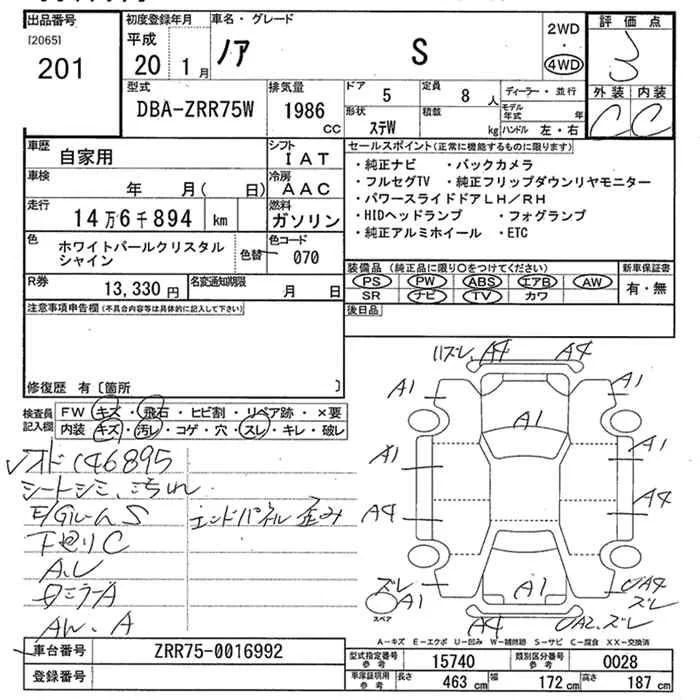 出品番号 初度登録年月 車名・グレード 2WD 評価点
[2065] 平成 ノア S ・ 3
201 20 1月 4WD
型式 排気量 ドア 5 定員 8人 ディーラー・並行 外装 内装
DBA-ZRR75W 1986 CC 形状 ステW 積載 kg モデル年式 年 C C
ハンドル 左・右
車歴 自家用 シフト IAT セールスポイント(正常に機能するものに限ります)
車検 年 月( 日) 冷房 AAC ・純正ナビ ・バックカメラ
・フルセグTV ・純正フリップダウンリヤモニター
走行 14万6千894 km 燃料 ガソリン ・パワースライドドアLH/RH
・HIDヘッドランプ ・フォグランプ
色 ホワイトパールクリスタルシャイン 色替 色コード 070 ・純正アルミホイール ・ETC
R券 13,330円 名変通知期限 月 日 装備品(純正品に限り○をつけてください) 新車保証書
PS PW ABS エアB AW 有・無
SR ナビ TV カワ
注意事項申告欄(不具合内容等は具体的に記入して下さい) 後日品
修復歴 有〔箇所 〕
検査員記入欄 FW キズ・飛石・ヒビ割・リペア跡・×要
内装 キズ・汚レ・コゲ・穴・スレ・キレ・破レ
146895
シートシミ、汚れ
E/GルームS エンドパネル歪み
下廻りC
A.U
ロミラーA
AW.A
ズレ A4 A4
A1 A1
A1
A1 A1
A4 A4
ズレ A1 A1 UA4 ズレ
スペア
A4 UA2.ズレ
A-キズ E-エクボ U-凹み W-補修跡 S-サビ C-腐食 XX-交換済
車台番号 ZRR75-0016992 型式指定番号 参考 15740 類別区分番号 参考 0028
登録番号 車庫証明用 参考 長さ 463cm 幅 172cm 高さ 187cm